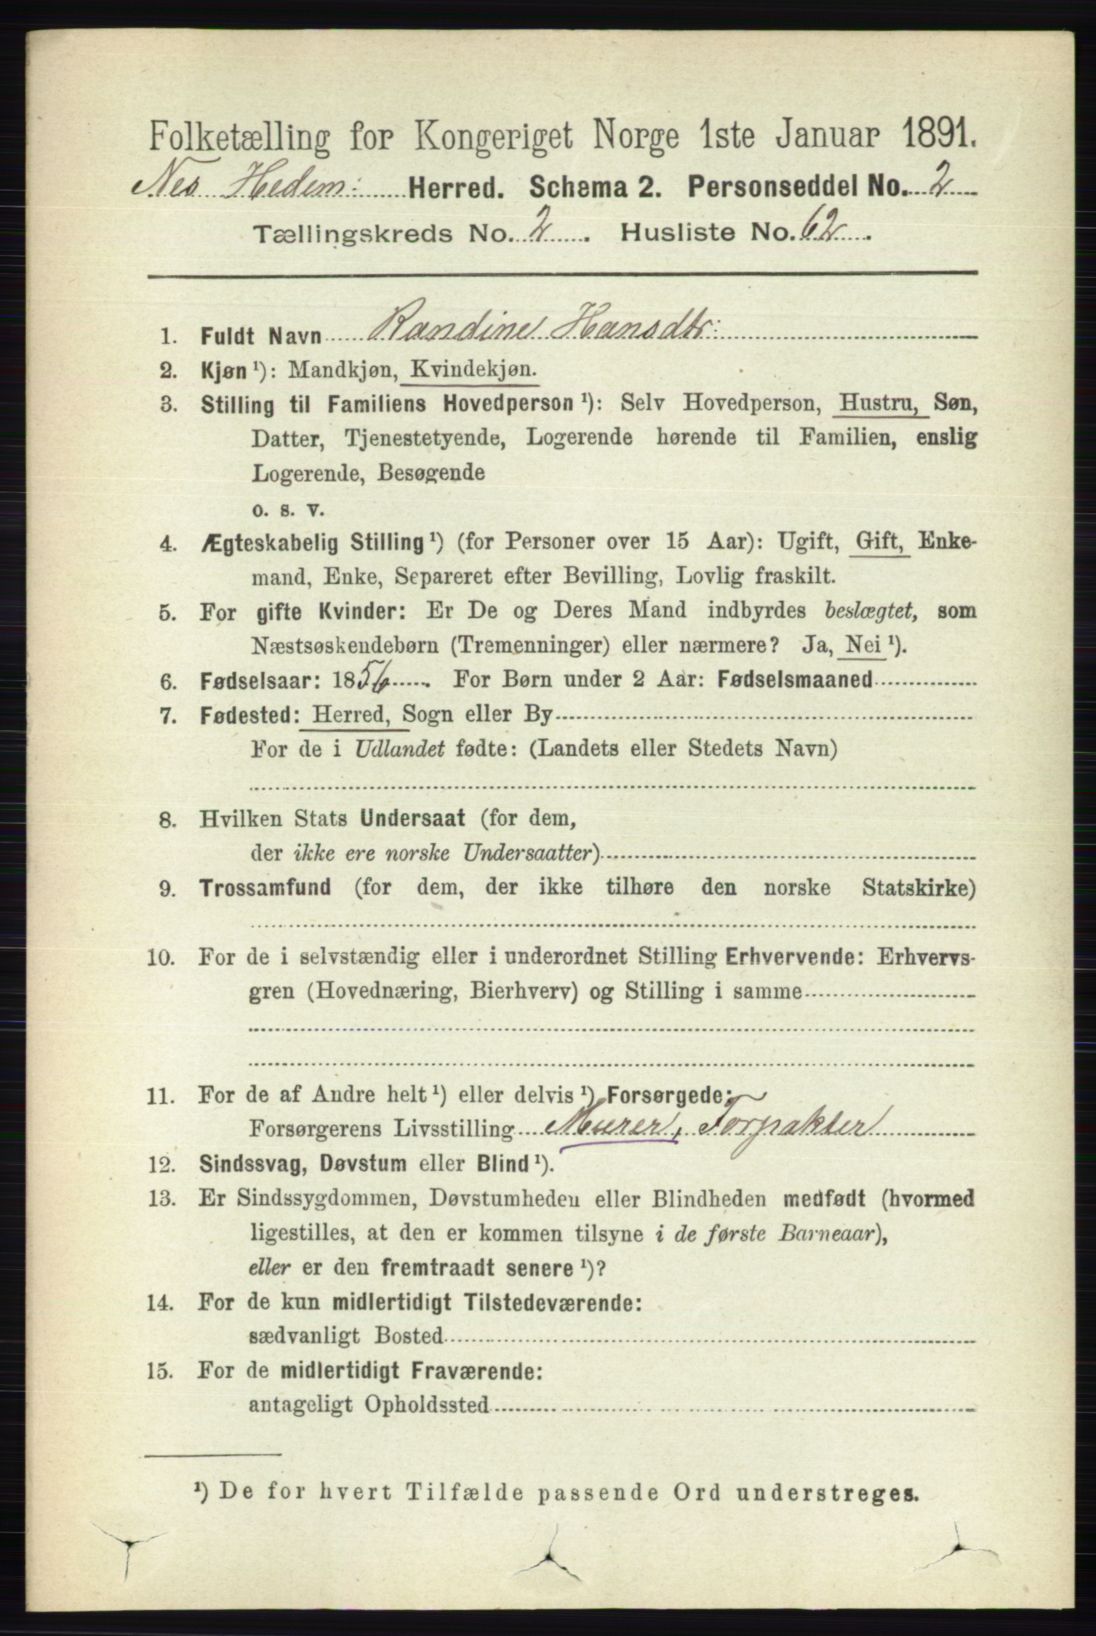 Folketælling for Kongeriget Norge 1ste Januar 1891.
Nes Hedem: Herred. Schema 2. Personseddel No. 2
Tællingskreds No. 2. Husliste No. 62.
1. Fuldt Navn Randine Hansdtr:
2. Kjøn ¹): Mandkjøn, Kvindekjøn.
3. Stilling til Familiens Hovedperson ¹): Selv Hovedperson, Hustru, Søn,
Datter, Tjenestetyende, Logerende hørende til Familien, enslig
Logerende, Besøgende
o. s. v.
4. Ægteskabelig Stilling ¹) (for Personer over 15 Aar): Ugift, Gift, Enke-
mand, Enke, Separeret efter Bevilling, Lovlig fraskilt.
5. For gifte Kvinder: Er De og Deres Mand indbyrdes beslægtet, som
Næstsøskendebørn (Tremenninger) eller nærmere? Ja, Nei ¹).
6. Fødselsaar: 1856. For Børn under 2 Aar: Fødselsmaaned
7. Fødested: Herred, Sogn eller By
For de i Udlandet fødte: (Landets eller Stedets Navn)
8. Hvilken Stats Undersaat (for dem,
der ikke ere norske Undersaatter)
9. Trossamfund (for dem, der ikke tilhøre den norske Statskirke)
10. For de i selvstændig eller i underordnet Stilling Erhvervende: Erhvervs-
gren (Hovednæring, Bierhverv) og Stilling i samme
11. For de af Andre helt ¹) eller delvis ¹) Forsørgede:
Forsørgerens Livsstilling Murer, Forpakter
12. Sindssvag, Døvstum eller Blind ¹).
13. Er Sindssygdommen, Døvstumheden eller Blindheden medfødt (hvormed
ligestilles, at den er kommen tilsyne i de første Barneaar),
eller er den fremtraadt senere ¹)?
14. For de kun midlertidigt Tilstedeværende:
sædvanligt Bosted
15. For de midlertidigt Fraværende:
antageligt Opholdssted
¹) De for hvert Tilfælde passende Ord understreges.